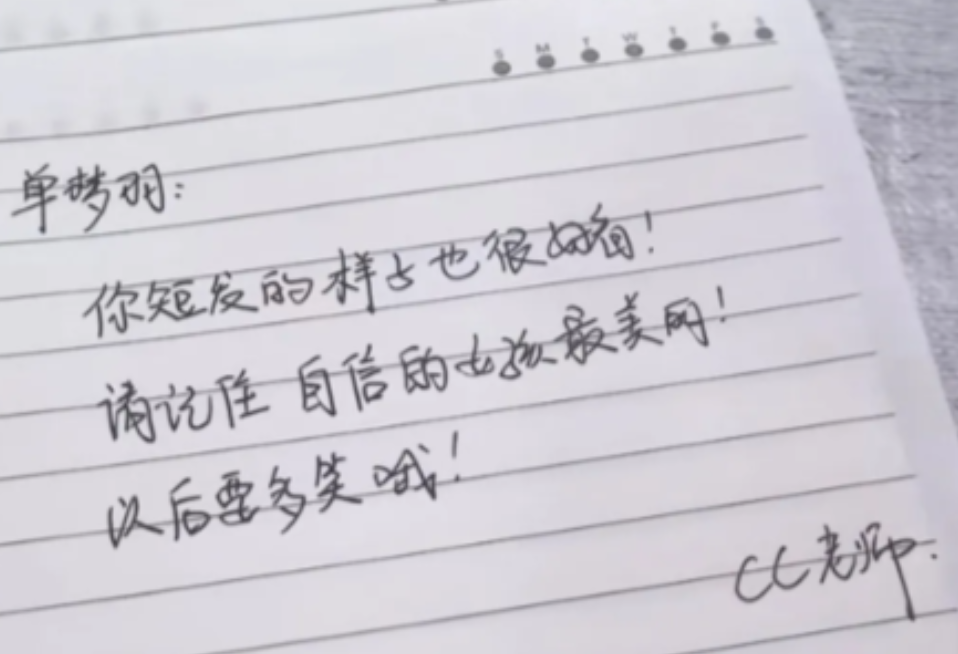 S M T W T F S
单梦羽:
你短发的样子也很好看!
请记住 自信的女孩最美丽!
以后要多笑哦!
CC老师.